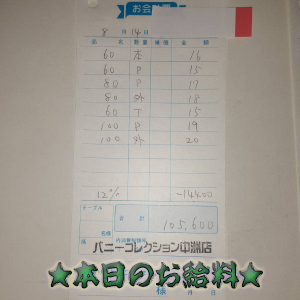 お会計票
8月14日
品名 数量 単価 金額
60 本 16
60 P 15
80 P 17
80 外 18
60 T 15
100 P 19
100 外 20
12% -14400
テーブル 合計 105,600
名様
バニーコレクション中洲店
★本日のお給料★
様 月 日